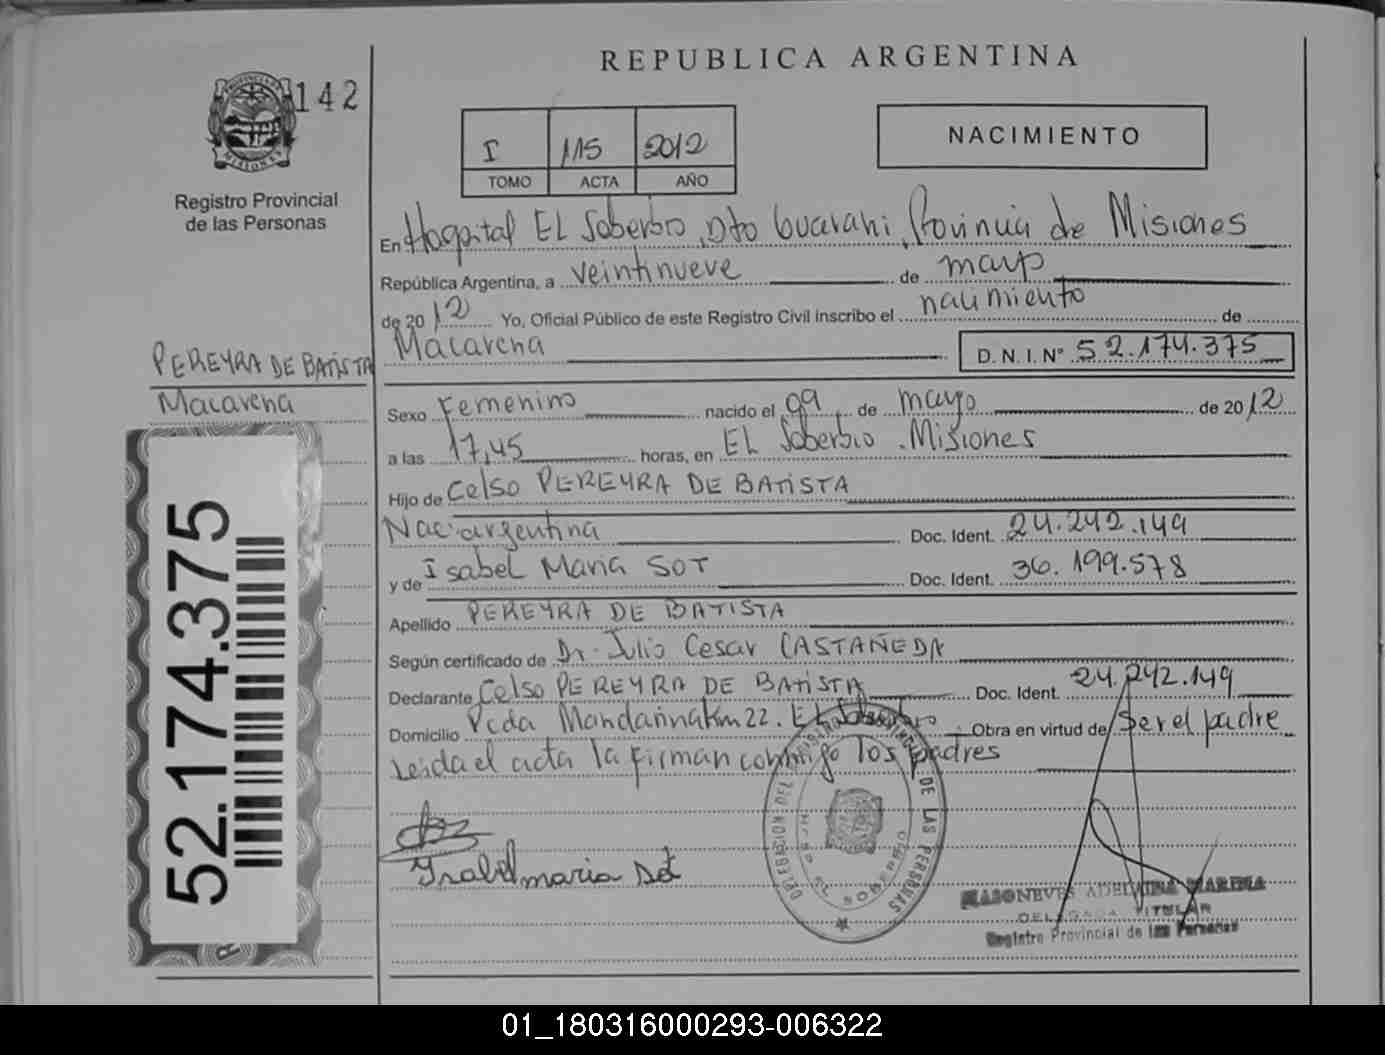 REPUBLICA ARGENTINA
142
PROVINCIA
MISIONES
Registro Provincial
de las Personas
I 115 2012
TOMO ACTA AÑO
NACIMIENTO
En Hospital EL Soberbio, Dto Guarani, Provincia de Misiones
República Argentina, a veintinueve de mayo
de 2012 Yo, Oficial Público de este Registro Civil inscribo el nacimiento de
Macarena D.N.I. N° 52.174.375
PEREYRA DE BATISTA
Macarena
Sexo Femenino nacido el 09 de mayo de 2012
a las 17,45 horas, en EL Soberbio .Misiones
Hijo de Celso PEREYRA DE BATISTA
Nac. argentina Doc. Ident. 24.242.149
y de Isabel Maria SOT Doc. Ident. 36.199.578
Apellido PEREYRA DE BATISTA
Según certificado de Dr. Julio Cesar CASTAÑEDA
Declarante Celso PEREYRA DE BATISTA Doc. Ident. 24.242.149
Domicilio Pcda Mandarina Km 22. EL Soberbio Obra en virtud de Ser el padre
Leida el acta la firman conmigo los padres
52.174.375
Isabel maria Sot
DELEGACION DEL REGISTRO DE LAS PERSONAS
EL SOBERBIO
MARINA
DELEGADA TITULAR
Registro Provincial de las Personas
01_180316000293-006322